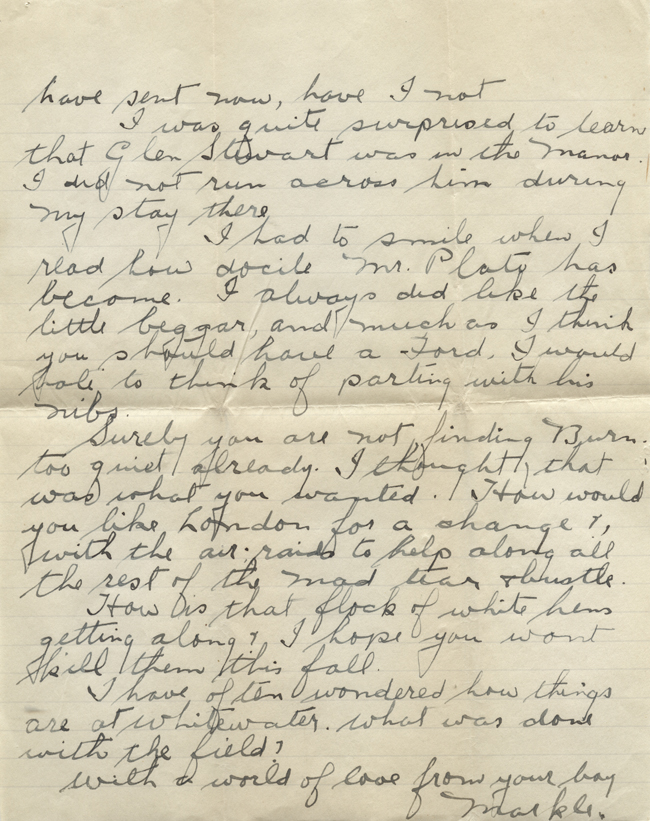 have sent now, have I not
I was quite surprised to learn
that Glen Stewart was in the Manor.
I did not run across him during
my stay there
I had to smile when I
read how docile Mr. Plato has
become. I always did like the
little beggar, and much as I think
you should have a Ford, I would
to think of parting with his
nibs.
Surely you are not finding Burn.
too quiet already. I thought that
was what you wanted. How would
you like London for a change?,
with the air-raids to help along all
the rest of the mad tear & bustle.
How is that flock of white hens
getting along? I hope you wont
kill them this fall.
I have often wondered how things
are at Whitewater. What was done
with the field?
With a world of love from your boy
Markle.